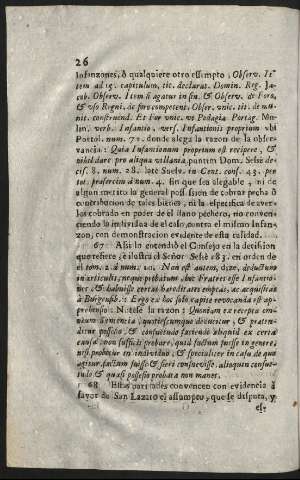 26
Infanzones, ò qualquiere otro essimpto, Observ. Item
tem ad 15. capitulum, tit. declarat. Domin. Reg. Ja-
cob. Observ. Item si agatur in fin. & Observ. de Foro,
& vso Regni, de foro competent. Obser. vnic. tit. de mu-
nit. construend. Et For vnic. vt Pedagia Portag. Mo-
lin. verb. Infantio, vers. Infantionis proprium vbi
Portol. num. 72. donde alega la razon de la obser-
vancia: Quia Infantionum proprium est recipere, &
nihil dare pro aliqua villania puntim Dom. Sessè de-
cis. 8. num. 28. late Suelv. in Cent. conf. 43. per
tot. præsertim à num. 4. sin que sea alegable, ni de
algun merito la general possession de cobrar pecha ò
contribucion de tales bienes, ni la especifica de aver-
los cobrado en poder de el llano pechero, no conven-
ciendo la individua de el caso, contra el mismo Infan-
zon, con demonstracion evidente de esta calidad.
67 Assi lo entendiò el Consejo en la decision
que refiere, è ilustra el Señor Sessè 183. en orden de
el tom. 2. à num. 10. Non est autem, dize, deductum
in articulis, neque probatum, hos Fratres esse Infantio-
nes, & habuisse certas hæreditates emptas, ac acquisitas
à Burgensib. : Ergo ex hoc solo capite revocanda est ap-
prehensio: Notese la razon: Quoniam ex recepta om-
nium sententia, quotiescumque deducitur, & præten-
ditur possessio, & consuetudo faciendi aliquid ex certa
causa non sufficit probare, quid factum fuisse in genere,
nisi probetur in individuo, & specialiter in casu de quo
agitur, factum fuisse & fieri consuevisse, alioquin consue-
tudo, & quasi possessio probata non manet.
68 Estas partidas convencen con evidencia à
favor de San Lazaro el assumpto, que se disputa, y
es,